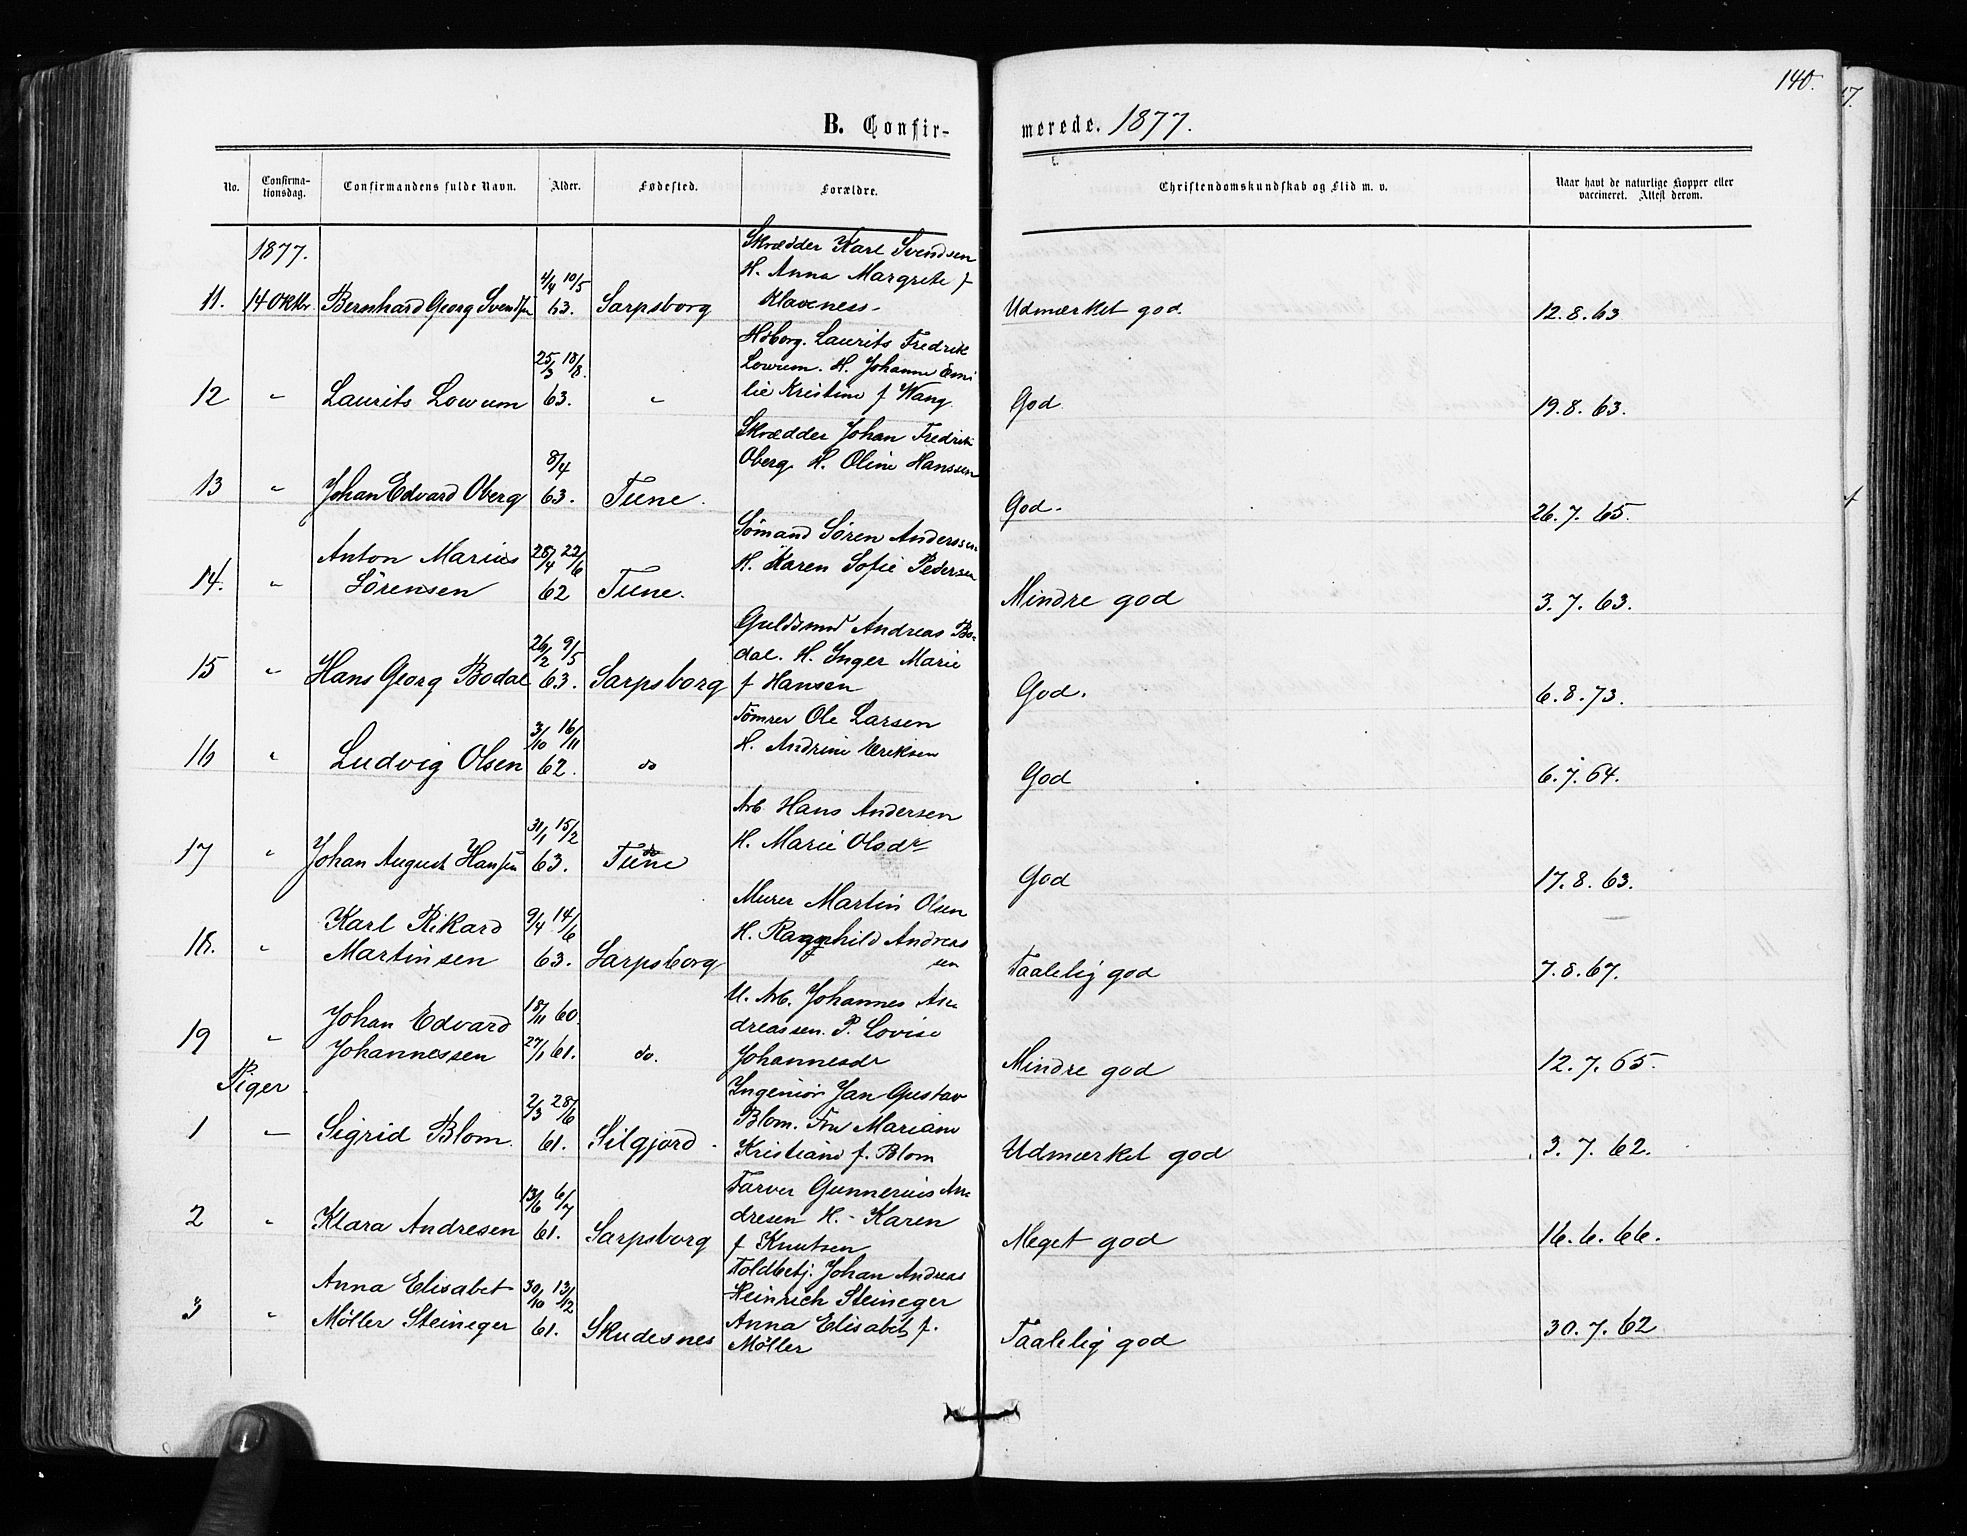 140.
B. Confir-
merede. 1877.
No.
Confirma-
tionsdag.
Confirmandens fulde Navn.
Alder.
Fødested.
Forældre.
Christendomskundskab og Flid m. v.
Naar havt de naturlige Kopper eller
vaccineret. Attest derom.
1877.
Skrædder Karl Svendsen
H. Anna Margrete f
Klaveness.
11. 14 Oktbr. Bernhard Georg Svendsen 4/4 10/5 63. Sarpsborg
Udmærket god. 12.8.63
Hsborg. Laurits Fredrik
Lowum. H. Johanne Emi
lie Kristine f Wang.
12 " Laurits Lowum 25/3 18/8. 63. "
God 19.8.63.
Skrædder Johan Fredrik
Oberg. H. Oline Hanssen
13 " Johan Edvard Oberg 8/4 63. Tune.
God. 26.7.65.
Sømand Søren Anderssen
H. Karen Sofie Pedersen
14. " Anton Marius
Sørensen 28/4 22/6 62 Tune.
Mindre god 3.7.63.
Guldsmed Andreas Bo-
dal. H. Inger Marie
f Hansen
15 " Hans Georg Bodal 26/2 9/5 63. Sarpsborg
God. 6.8.73.
Tømrer Ole Larsen
H. Andrine Eriksen
16 " Ludvig Olsen 3/10 16/11 62. do
God 6.7.64.
Arb. Hans Andersen
H. Marie Olsdr
17 " Johan August Hansen 31/1 15/2 63. Tune
God 17.8.63.
Murer Martin Olsen
H. Ragnhild Andreas
sen
18. " Karl Rikard
Martinsen 9/4 14/6 63. Sarpsborg
Taalelig god 7.8.67.
U. Arb. Johannes An
dreassen. P. Lovise
Johannesdr
19 " Johan Edvard
Johannessen 18/11 60. 27/1 61. do.
Mindre god 12.7.65.
Piger
Ingeniør Jan Gustav
Blom. Fru Mariane
Kristiane f. Blom
1 " Sigrid Blom. 2/3 28/6 61. Silgjord.
Udmærket god 3.7.62.
Farver Gunnerius An
dresen H. - Karen
f Knutsen
2 " Klara Andresen 13/6 6/7 61. Sarpsborg
Meget god 16.6.66.
Toldbetj. Johan Andreas
Heinrich Steineger
Anna Elisabet f.
Møller
3 " Anna Elisabet
Møller Steineger 30/10 13/12 61. Skudesnes
Taalelig god 30.7.62